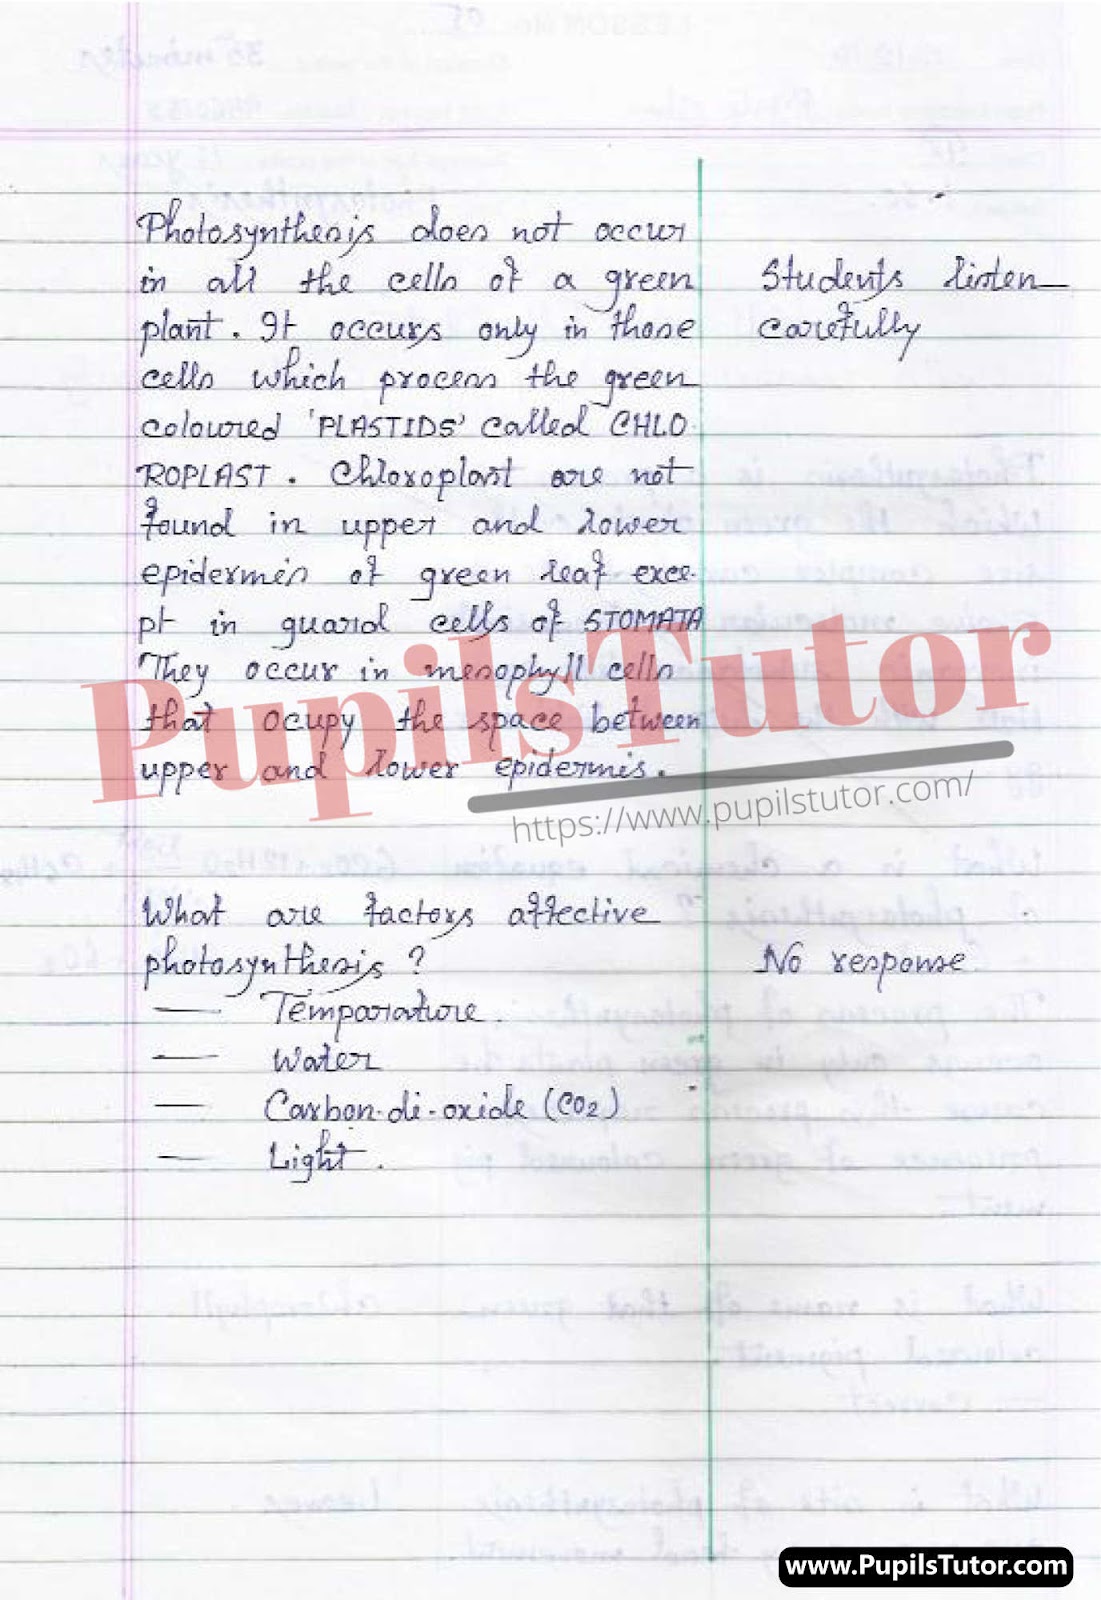 Photosynthesis does not occur
in all the cells of a green
plant. It occurs only in those
cells which process the green
coloured 'PLASTIDS' called CHLO
ROPLAST. Chloroplast are not
found in upper and lower
epidermis of green leaf exce-
pt in guard cells of STOMATA
They occur in mesophyll cells
that ocupy the space between
upper and lower epidermis.
Students listen
carefully
What are factors affective
photosynthesis?
— Temparature.
— Water
— Carbon-di-oxide (CO2)
— Light.
No response
PupilsTutor
https://www.pupilstutor.com/
www.PupilsTutor.com